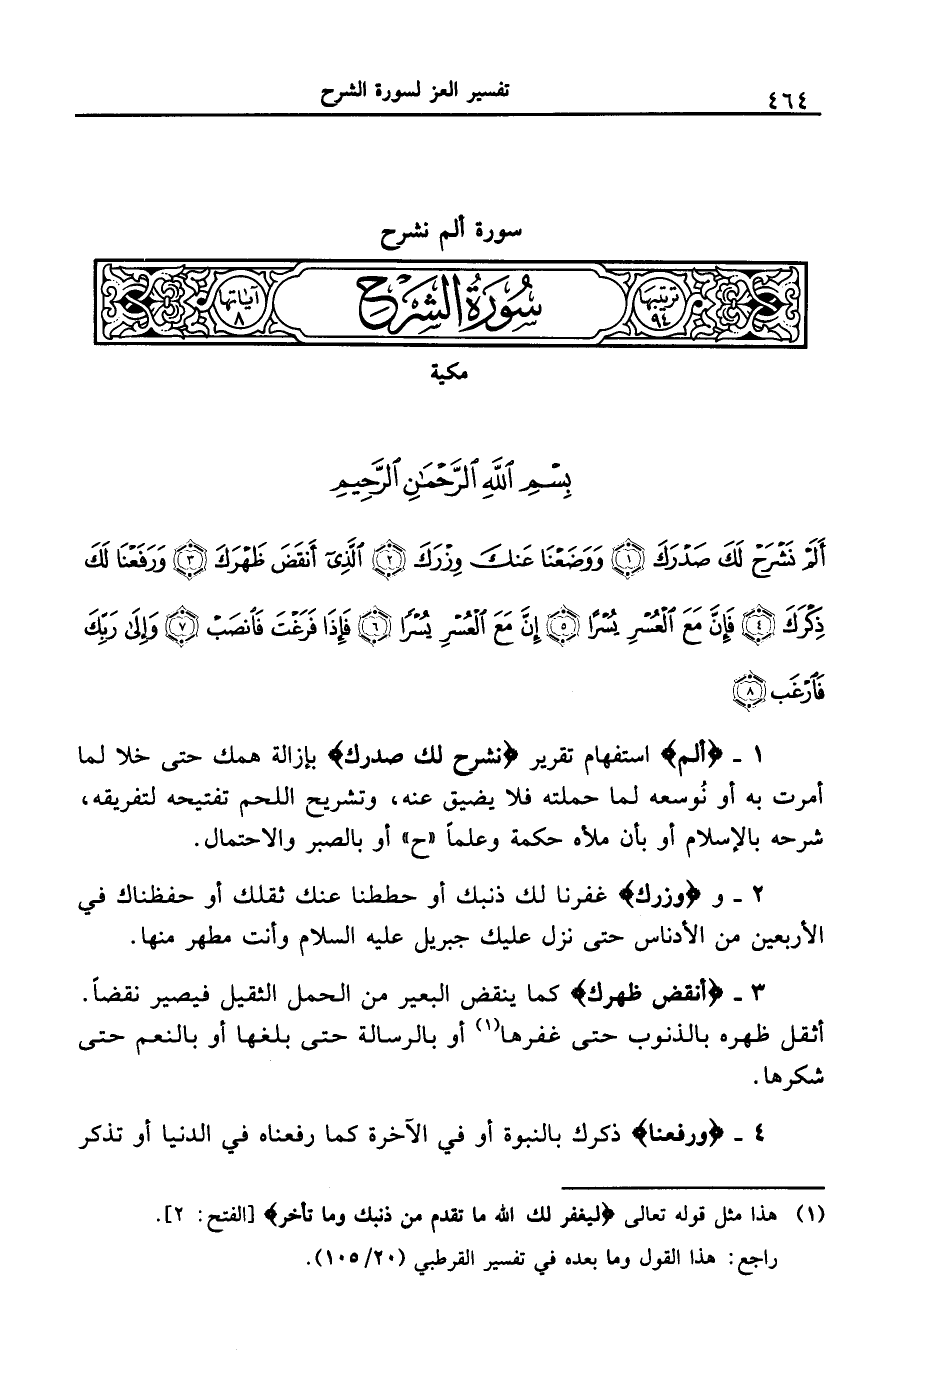 ٤٦٤
تفسير العز لسورة الشرح
سورة ألم نشرح
ترتيبها ٩٤ سُورَةُ الشَّرْحِ آياتها ٨
مكية
بِسْمِ ٱللَّهِ ٱلرَّحْمَٰنِ ٱلرَّحِيمِ
أَلَمْ نَشْرَحْ لَكَ صَدْرَكَ ١ وَوَضَعْنَا عَنكَ وِزْرَكَ ٢ ٱلَّذِىٓ أَنقَضَ ظَهْرَكَ ٣ وَرَفَعْنَا لَكَ
ذِكْرَكَ ٤ فَإِنَّ مَعَ ٱلْعُسْرِ يُسْرًا ٥ إِنَّ مَعَ ٱلْعُسْرِ يُسْرًا ٦ فَإِذَا فَرَغْتَ فَٱنصَبْ ٧ وَإِلَىٰ رَبِّكَ
فَٱرْغَب ٨
١ ـ ﴿ألم﴾ استفهام تقرير ﴿نشرح لك صدرك﴾ بإزالة همك حتى خلا لما
أمرت به أو نُوسعه لما حملته فلا يضيق عنه، وتشريح اللحم تفتيحه لتفريقه،
شرحه بالإسلام أو بأن ملأه حكمة وعلماً «ح» أو بالصبر والاحتمال.
٢ ـ و ﴿وزرك﴾ غفرنا لك ذنبك أو حططنا عنك ثقلك أو حفظناك في
الأربعين من الأدناس حتى نزل عليك جبريل عليه السلام وأنت مطهر منها.
٣ ـ ﴿أنقض ظهرك﴾ كما ينقض البعير من الحمل الثقيل فيصير نقضاً.
أثقل ظهره بالذنوب حتى غفرها(١) أو بالرسالة حتى بلغها أو بالنعم حتى
شكرها.
٤ ـ ﴿ورفعنا﴾ ذكرك بالنبوة أو في الآخرة كما رفعناه في الدنيا أو تذكر
(١) هذا مثل قوله تعالى ﴿ليغفر لك الله ما تقدم من ذنبك وما تأخر﴾ [الفتح: ٢].
راجع: هذا القول وما بعده في تفسير القرطبي (٢٠/١٠٥).